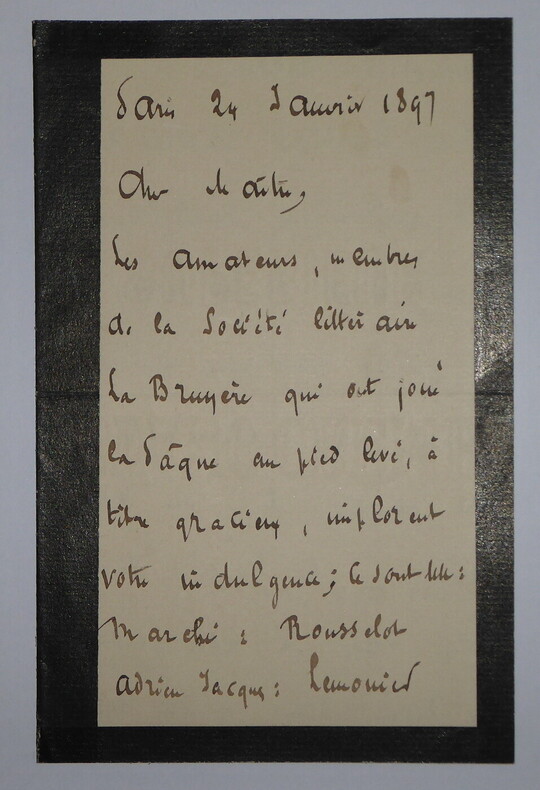 Paris 24 Janvier 1897
Cher Maître,
Les amateurs, membres
de la Société littéraire
La Bruyère qui ont joué
la Pâque au pied levé, à
titre gracieux, implorent
votre indulgence; ce sont
Marché: Rousselot
Adrien Jacques: Lemonier